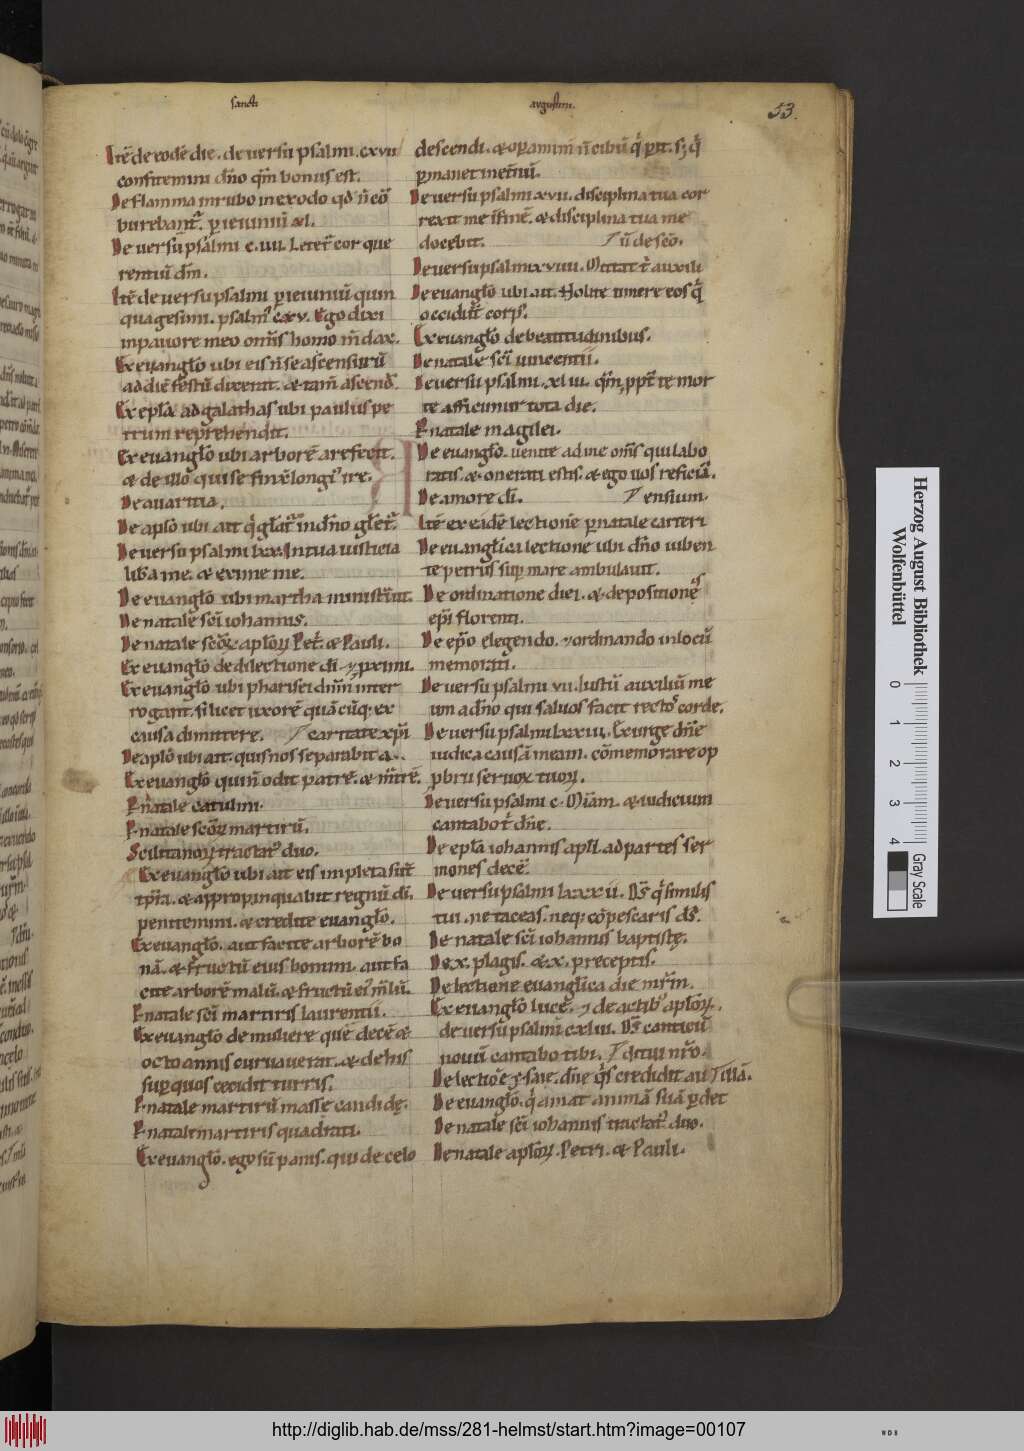 sancti
augustini.
53.
Itē de eodē die. de versu psalmi. cxvii
confitemini dn̄o qm̄ bonus est.
De flamma in rubo in exodo qd n̄ cō
burebant. p ieiuniū
De versu psalmi c. iiii. Letet̄ cor que
rentiū dm̄.
Itē de versu psalmi p ieiuniū quin
quagesimi. psalmi cxv. Ego dixi
in pavore meo om̄s homo mdax.
Ex evanglō ubi eis n̄ se ascensurū
ad diē festū dixerat. & tam̄ ascend.
Ex epla ad galathas ubi paulus pe
trum reprehendit.
Ex evanglō ubi arborē arefecit.
& de illo qui se finxit longi ire.
De avaritia.
De aplo ubi ait q̇ glat̄ in dn̄o glet̄.
De versu psalmi lxx. In tua iusticia
libera me. & exime me.
De evanglō ubi martha ministrat.
De natale sc̄i iohannis.
De natale scōꝝ aplōꝝ Pet̄. & Pauli.
Ex evanglō de dilectione dī ⁊ pximi.
Ex evanglō ubi pharisei dnm̄ inter
rogant. si licet uxorē quācūq; ex
causa dimittere. caritate xpi
De aplō ubi ait. quis nos separabit a
Ex evanglō qui n̄ odit patrē. & mr̄ē.
In natale catulini.
In natale scōꝝ martirū.
Scilitanoꝝ tractat duo.
Ex evanglō ubi ait eis impleta sūt
tp̄ra. & appropinquabit regnū dī.
penitemini. & credite evanglo.
Ex evanglō. aut facite arborē bo
nā. & fructū eius bonum. aut fa
cite arborē malū. & fructū ei mlū.
In natale sc̄i martiris laurentii.
Ex evanglō de muliere que decē &
octo annis curva erat. & de his
sup quos cecidit turris.
In natale martirū masse candidę.
In natale martiris quadrati.
Ex evanglō. ego sū panis. qui de celo
descendi. & opamini n̄ cibū q̇ pit. s; q̇
pmanet in et̄nū.
De versu psalmi xvii. disciplina tua cor
rexit me in finē. & disciplina tua me
docebit. ū de scō.
De versu psalmi xviiii. Mittat t̄ auxili
De evanglō ubi ait. Nolite timere eos q̇
occidūt corps.
Ex evanglō de beatitudinibus.
De natale sc̄i vincentii.
De versu psalmi. xl iii. qm̄ ppt̄ te mor
te afficimur tota die.
In natale magilei.
De evanglō. venite ad me om̄s qui labo
ratis. & onerati estis. & ego vos reficiā.
De amore dī. ensium.
Itē ex eadē lectione p natale carteri
De evanglica lectione ubi dn̄o iuben
te petrus sup mare ambulavit.
De ordinatione diei. & depositionę
epī florenti.
De epō elegendo. ⁊ ordinando in locū
memorati.
De versu psalmi vii. Iustū auxiliū me
um a dn̄o qui salvos facit rectos corde.
De versu psalmi lxxiii. Exurge dn̄e
iudica causā meam. cōmemorare op
pbrii servoꝝ tuoꝝ.
De versu psalmi c. Miam. & iudicium
cantabo t̄ dn̄e.
De epla iohannis apli. ad partes ser
mones decē.
De versu psalmi lxxxii. Ds̄ q̇ similis
tui. ne taceas. neq; cōpescaris ds̄.
De natale sc̄i iohannis baptistę.
De .x. plagis. & .x. preceptis.
De lectione evanglica die mr̄m.
Ex evanglō lucę. ⁊ de actib aplōꝝ.
de versu psalmi cxliii. Ds̄ canticū
novū cantabo tibi. ditui nr̄o.
De lectiōe ysaie. dn̄e q̇s credidit au illā.
De evanglō. q̇ amat animā suā pdet
De natale sc̄i iohannis tractat duo.
De natale aplōꝝ. Petri. & Pauli.
Herzog August Bibliothek
Wolfenbüttel
0 1 2 3 4
Gray Scale
http://diglib.hab.de/mss/281-helmst/start.htm?image=00107